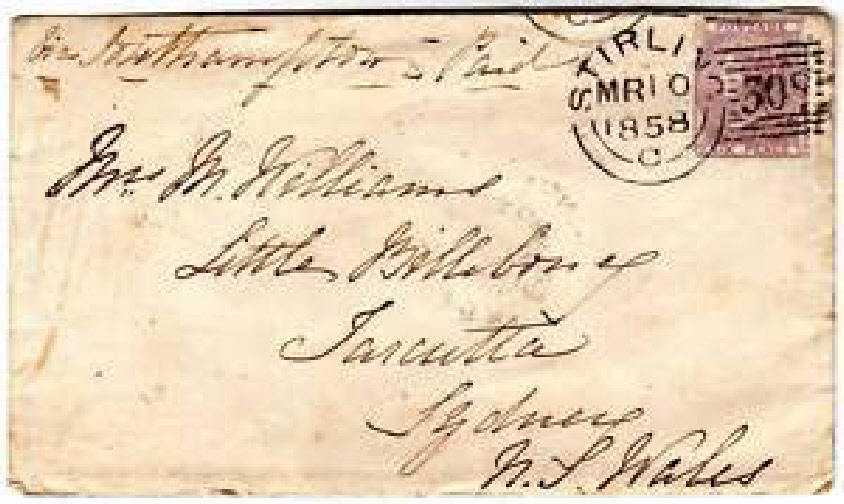 via Southampton - Paid
STIRLI
MR 10
1858
C
Mrs M. Williams
Little Billebong
Tarcutta
Sydney
N. S. Wales